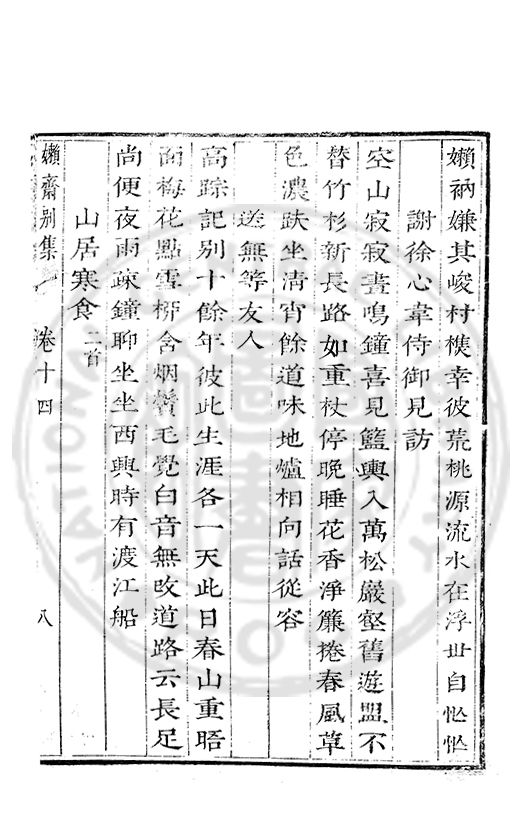 嬾衲嫌其峻村樵幸彼荒桃源流水在浮丗自怭怭
謝徐心韋侍御見訪
空山寂寂晝鳴鐘喜見籃輿入萬松巖壑舊遊盟不
替竹杉新長路如重杖停晚睡花香淨簾捲春風草
色濃趺坐清宵餘道味地爐相向話從容
送無等友人
高踪記别十餘年彼此生涯各一天此日春山重晤
面梅花點雪栁含烟鬢毛覺白音無改道路云長足
尚便夜雨疎鐘聊坐坐西興時有渡江船
山居寒食二首
嬾齋别集 卷十四 八